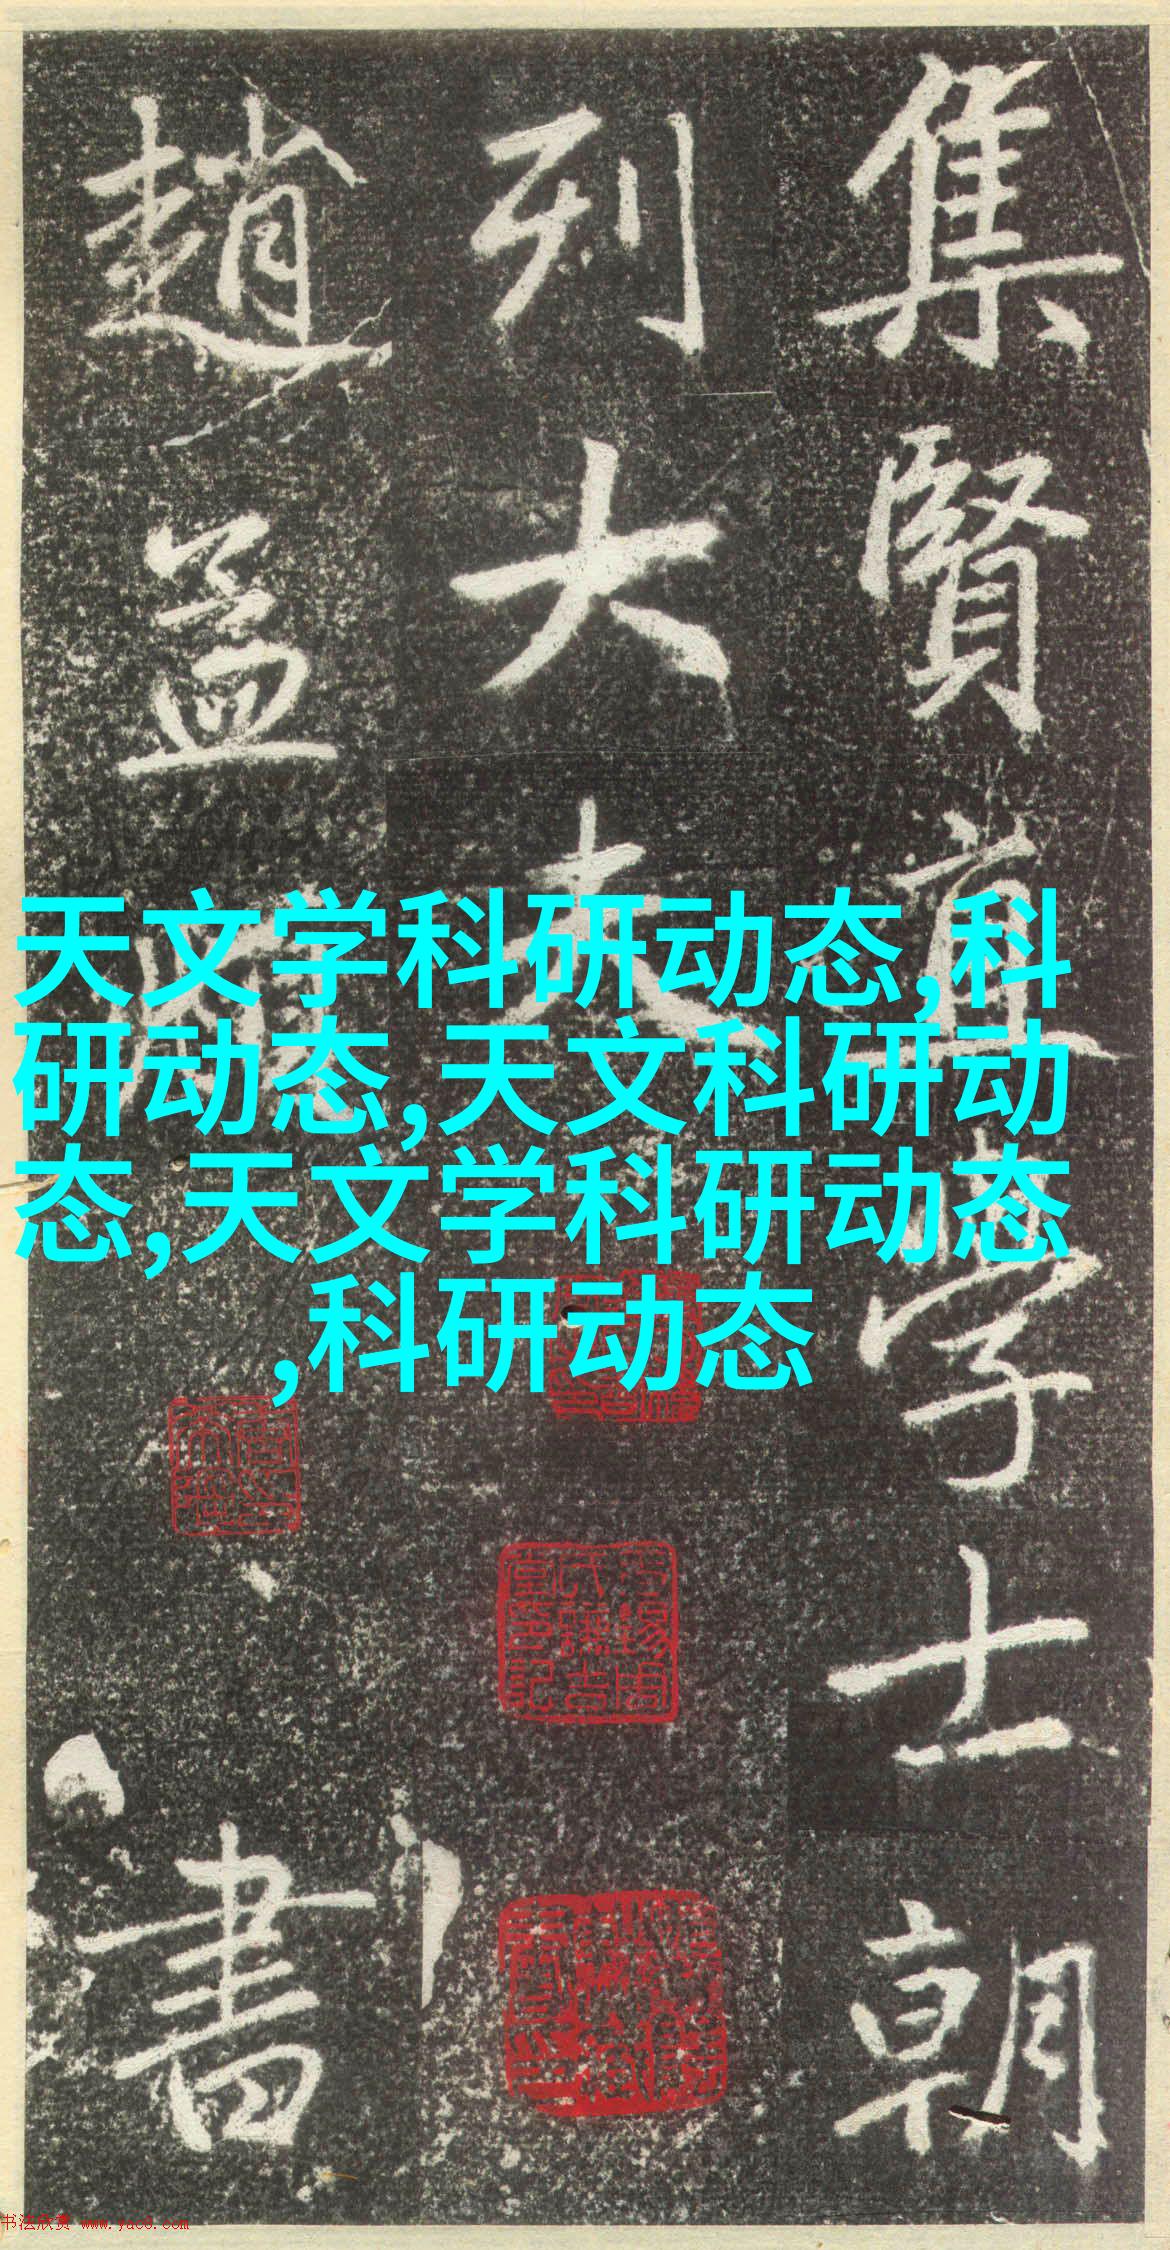 集賢直學士朝
列大夫
趙孟頫
書
天文学科研动态,科
研动态,天文科研动
态,天文学科研动态
,科研动态
书法欣赏 www.yac8.com